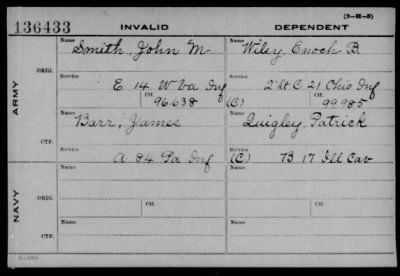 (3-H-5)
136433 INVALID DEPENDENT
Name Smith, John M. Name Wiley, Enoch B.
ORIG. Service E. 14 W Va Inf Service 2" Lt C 21 Ohio Inf
Ctf. 96.638 (C) Ctf. 99.985
ARMY
Name Barr, James Name Quigley, Patrick
CTF. Service A 84 Pa Inf Service (C) B 17 Ill Cav
Name Ctf. Name Ctf.
ORIG. Service Service
NAVY
Name Name
CTF. Service Service